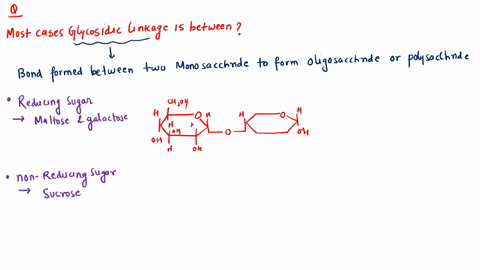 Q
Most cases Glycosidic Linkage is between?
Bond formed between two Monosacchride to form oligosacchride or polysacchride
• Reducing Sugar
→ Maltose & galactose
CH2OH
H O H H O H
H H
OH OH O OH
H OH
• non-Reducing Sugar
→ Sucrose